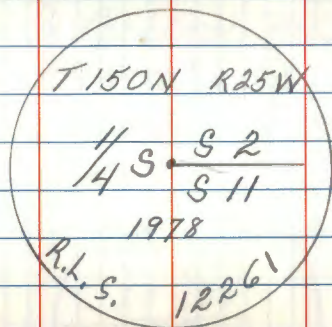 T150N R25W
1/4 S S 2
S 11
1978
R.L.S. 12261